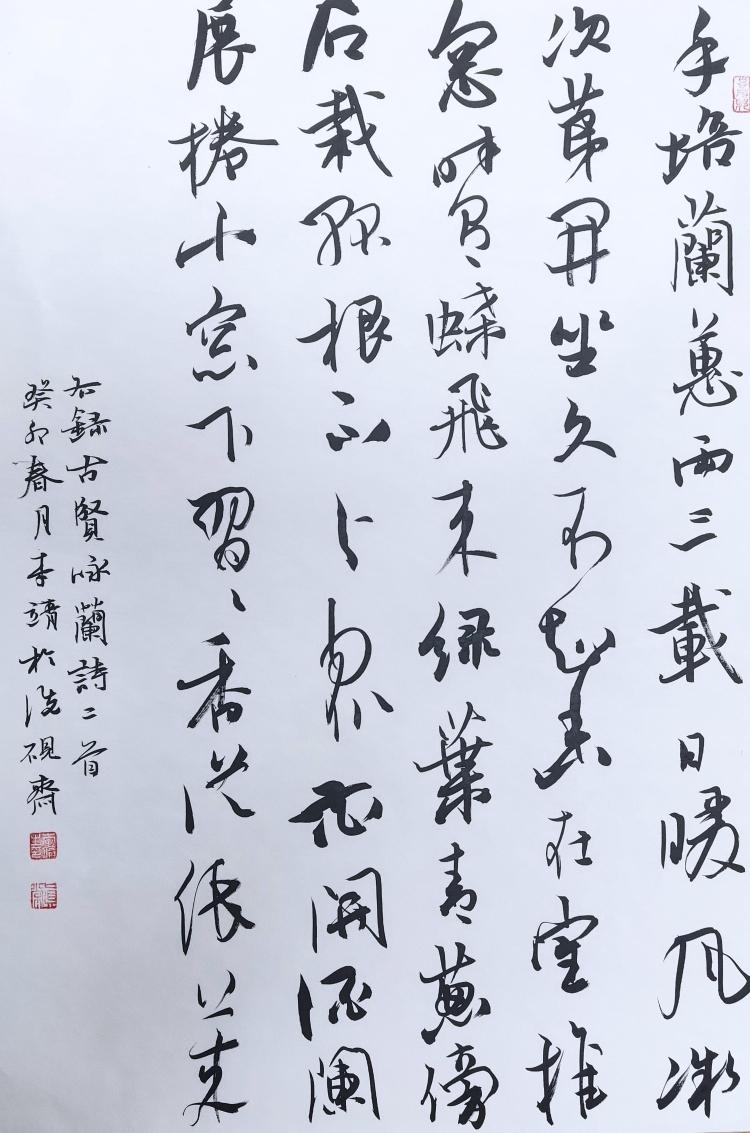 手培蘭蕙兩三載日暖風微
次第開坐久不知香在室推
窓時有蝶飛来緑葉青葱傍
石栽孤根不与衆花開酒闌
展捲小窓下習〻香從紙上来
右録古賢咏蘭詩二首
癸卯春月李靖於洗硯齋